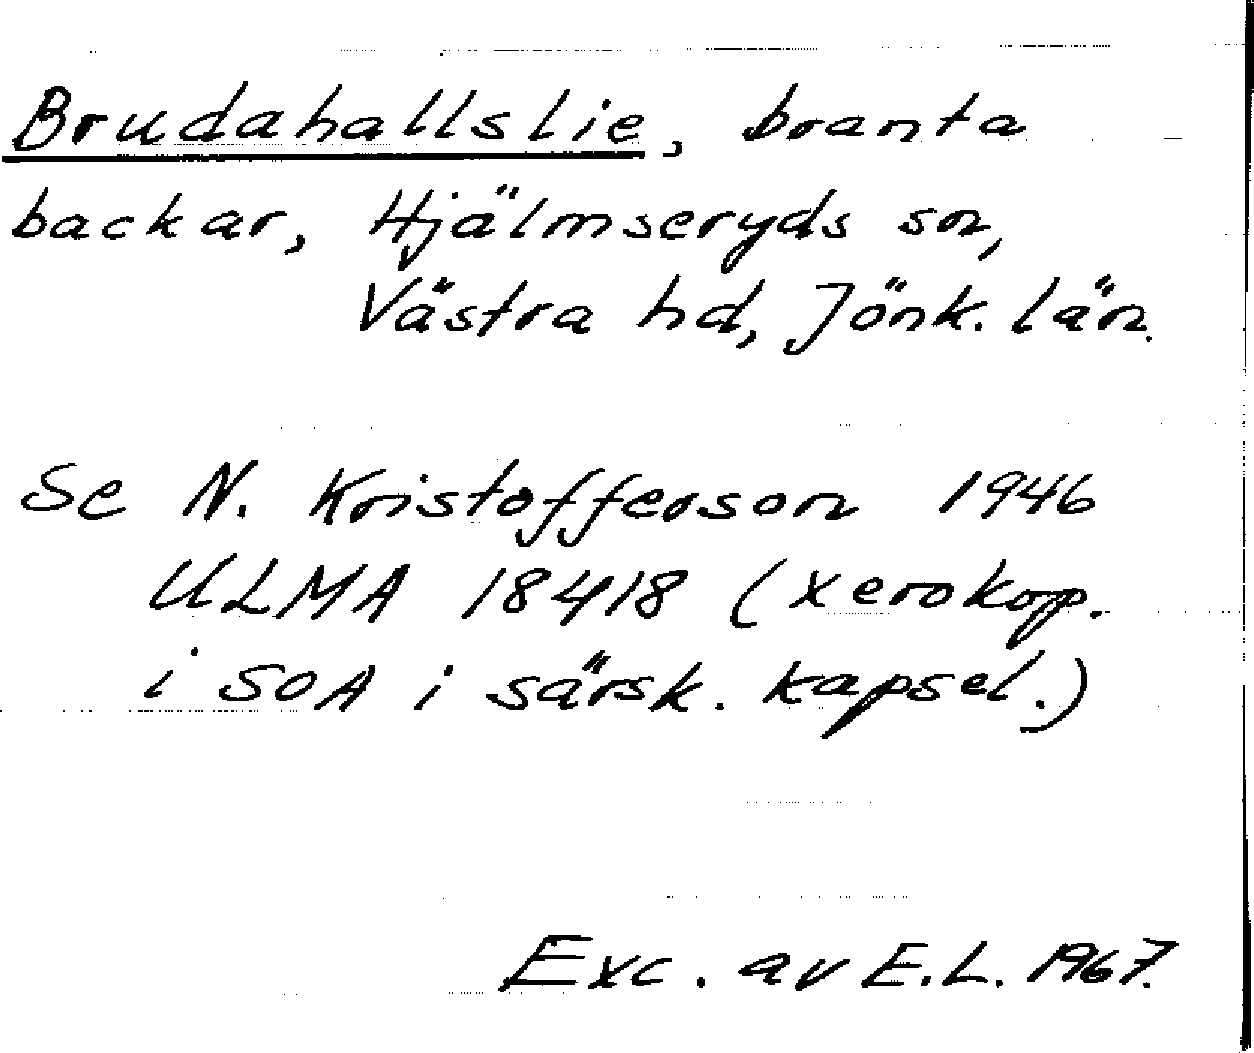 Brudahallslie, branta
backar, Hjälmseryds sn,
Västra hd, Jönk. län.
Se N. Kristofferson 1946
ULMA 18418 (xerokop.
i SOA i särsk. kapsel.)
Exc. av E.L. 1967.